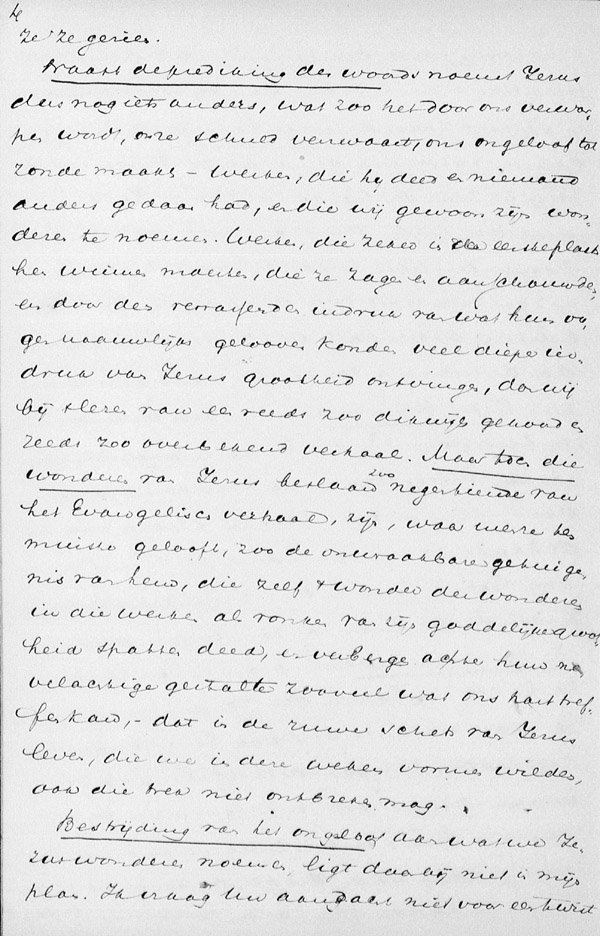 4
ze ze zeggen.
Naast de prediking des woords noemt Jezus
hier nog iets anders, wat zoo het door ons verwor-
pen wordt, onze schuld verzwaart, ons ongeloof tot
zonde maakt – werken, die hij deed en niemand
anders gedaan had, en die wij gewoon zijn won-
deren te noemen. Werken, die zeker in de eerste plaats
hen winnen moesten, die ze zagen en aanschouwden,
en door den verrassenden indruk van wat hun oo-
gen naauwlijks gelooven konden veel diepe in-
druk van Jezus grootheid ontvingen, dan wij
bij 't lezen van een reeds zoo dikwijls gehoord en
reeds zoo overbekend verhaal. Maar toch die
wonderen van Jezus beslaan zoo negentiende van
het Evangelisch verhaal, zijn, waar men ze
minste gelooft, zoo de onwraakbare getuige-
nis van hem, die zelf 't wonder der wonderen
in die werken als vonken van zijn goddelijke groot-
heid spatten deed, en verbergen achter hun
gestalte zooveel wat ons hart tref-
fen kan, – dat in de ruwe schets van Jezus
leven, die we in deze weken vormen wilden,
ook die trek niet ontbreken mag.
Bestrijding van het ongeloof aan wat we Je-
zus wonderen noemen, ligt daarbij niet in mijn
plan. Ik vraag Uw aandacht niet voor een twist